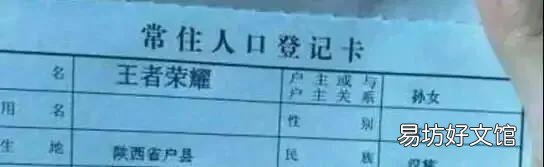 常住人口登记卡
名 王者荣耀 户主或与户主关系 孙女
用名 性别
生地 陕西省户县 民族 汉族
易坊好文馆